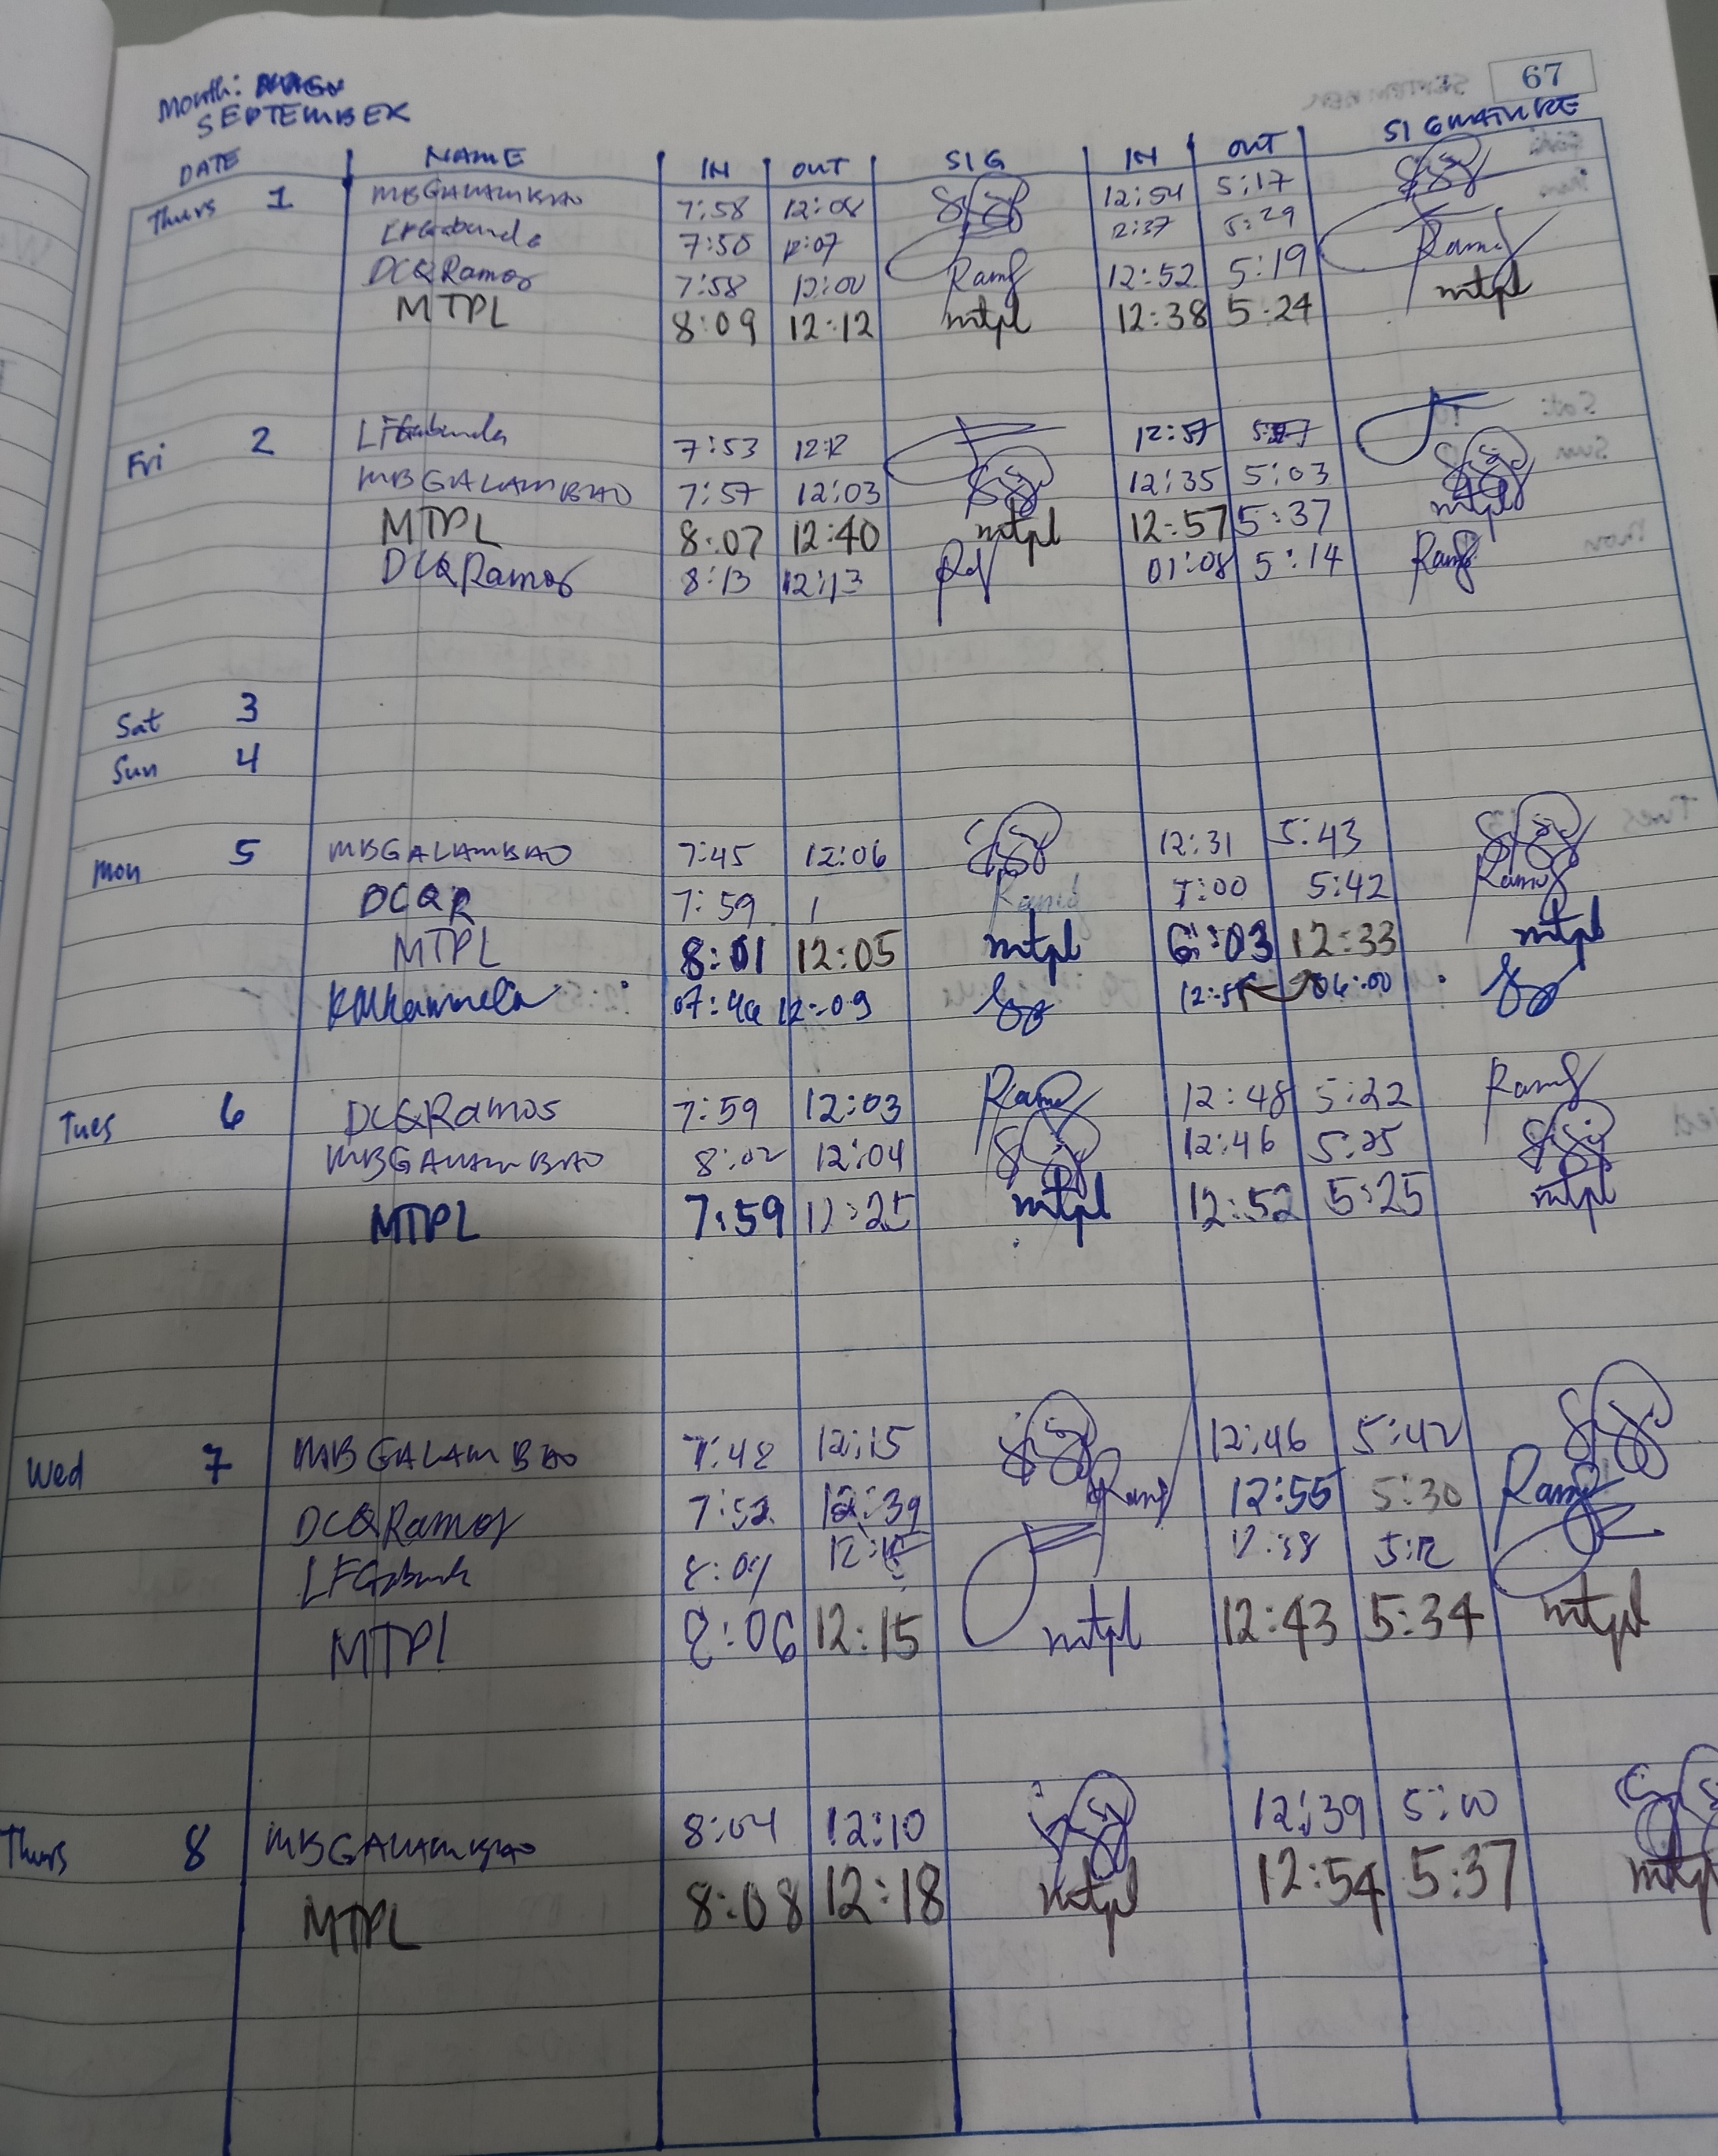 67
Month:
SEPTEMBER
DATE NAME IN OUT SIG IN OUT SIGNATURE
Thurs 1 MBGALAMBAO 7:58 12:08 12:54 5:17
LFGabunda 7:50 12:07 12:37 5:29
DCQRamos 7:58 12:00 Ramos 12:52 5:19 Ramos
MTPL 8:09 12:12 mtpl 12:38 5:24 mtpl
Fri 2 LFGabunda 7:53 12:12 12:57
MBGALAMBAO 7:57 12:03 12:35 5:03
MTPL 8:07 12:40 mtpl 12:57 5:37 mtpl
DCQRamos 8:13 12:13 01:08 5:14 Ramos
Sat 3
Sun 4
Mon 5 MBGALAMBAO 7:45 12:06 12:31 5:43
DCQR 7:59 Ramos 1:00 5:42 Ramos
MTPL 8:01 12:05 mtpl 6:03 12:33 mtpl
07:46 12:09 06:00
Tues 6 DCQRamos 7:59 12:03 Ramos 12:48 5:22 Ramos
MBGALAMBAO 8:02 12:04 12:46 5:25
MTPL 7:59 12:25 mtpl 12:52 5:25 mtpl
Wed 7 MBGALAMBAO 7:48 12:15 12:46 5:42
DCQRamos 7:52 12:39 Ramos 12:55 5:30 Ramos
LFGabunda 12:38 5:12
MTPL 8:06 12:15 mtpl 12:43 5:34 mtpl
Thurs 8 MBGALAMBAO 8:04 12:10 12:39 5:10
MTPL 8:08 12:18 mtpl 12:54 5:37